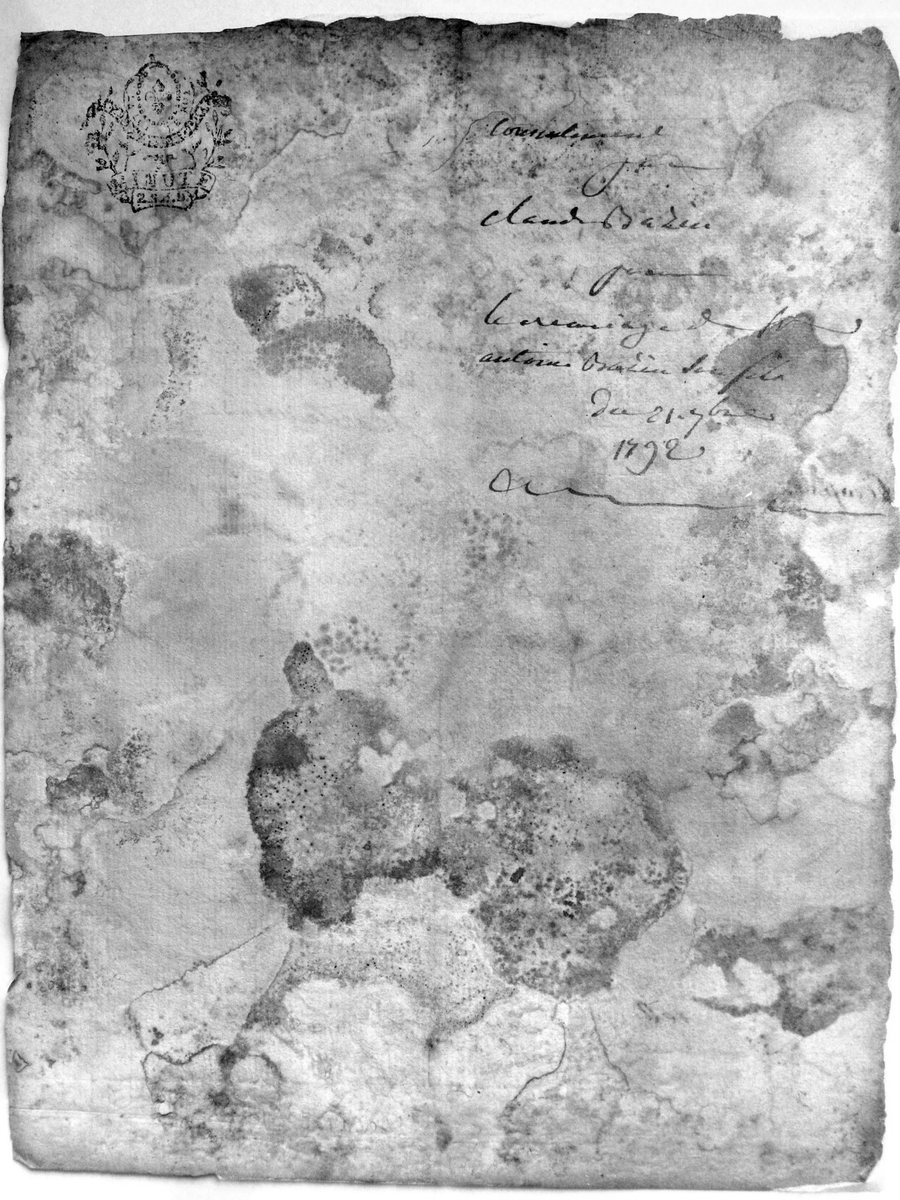 consentement
pour
claude Bazin
pour
le mariage de
antoine Bazin son fils
du 21 7bre
1792